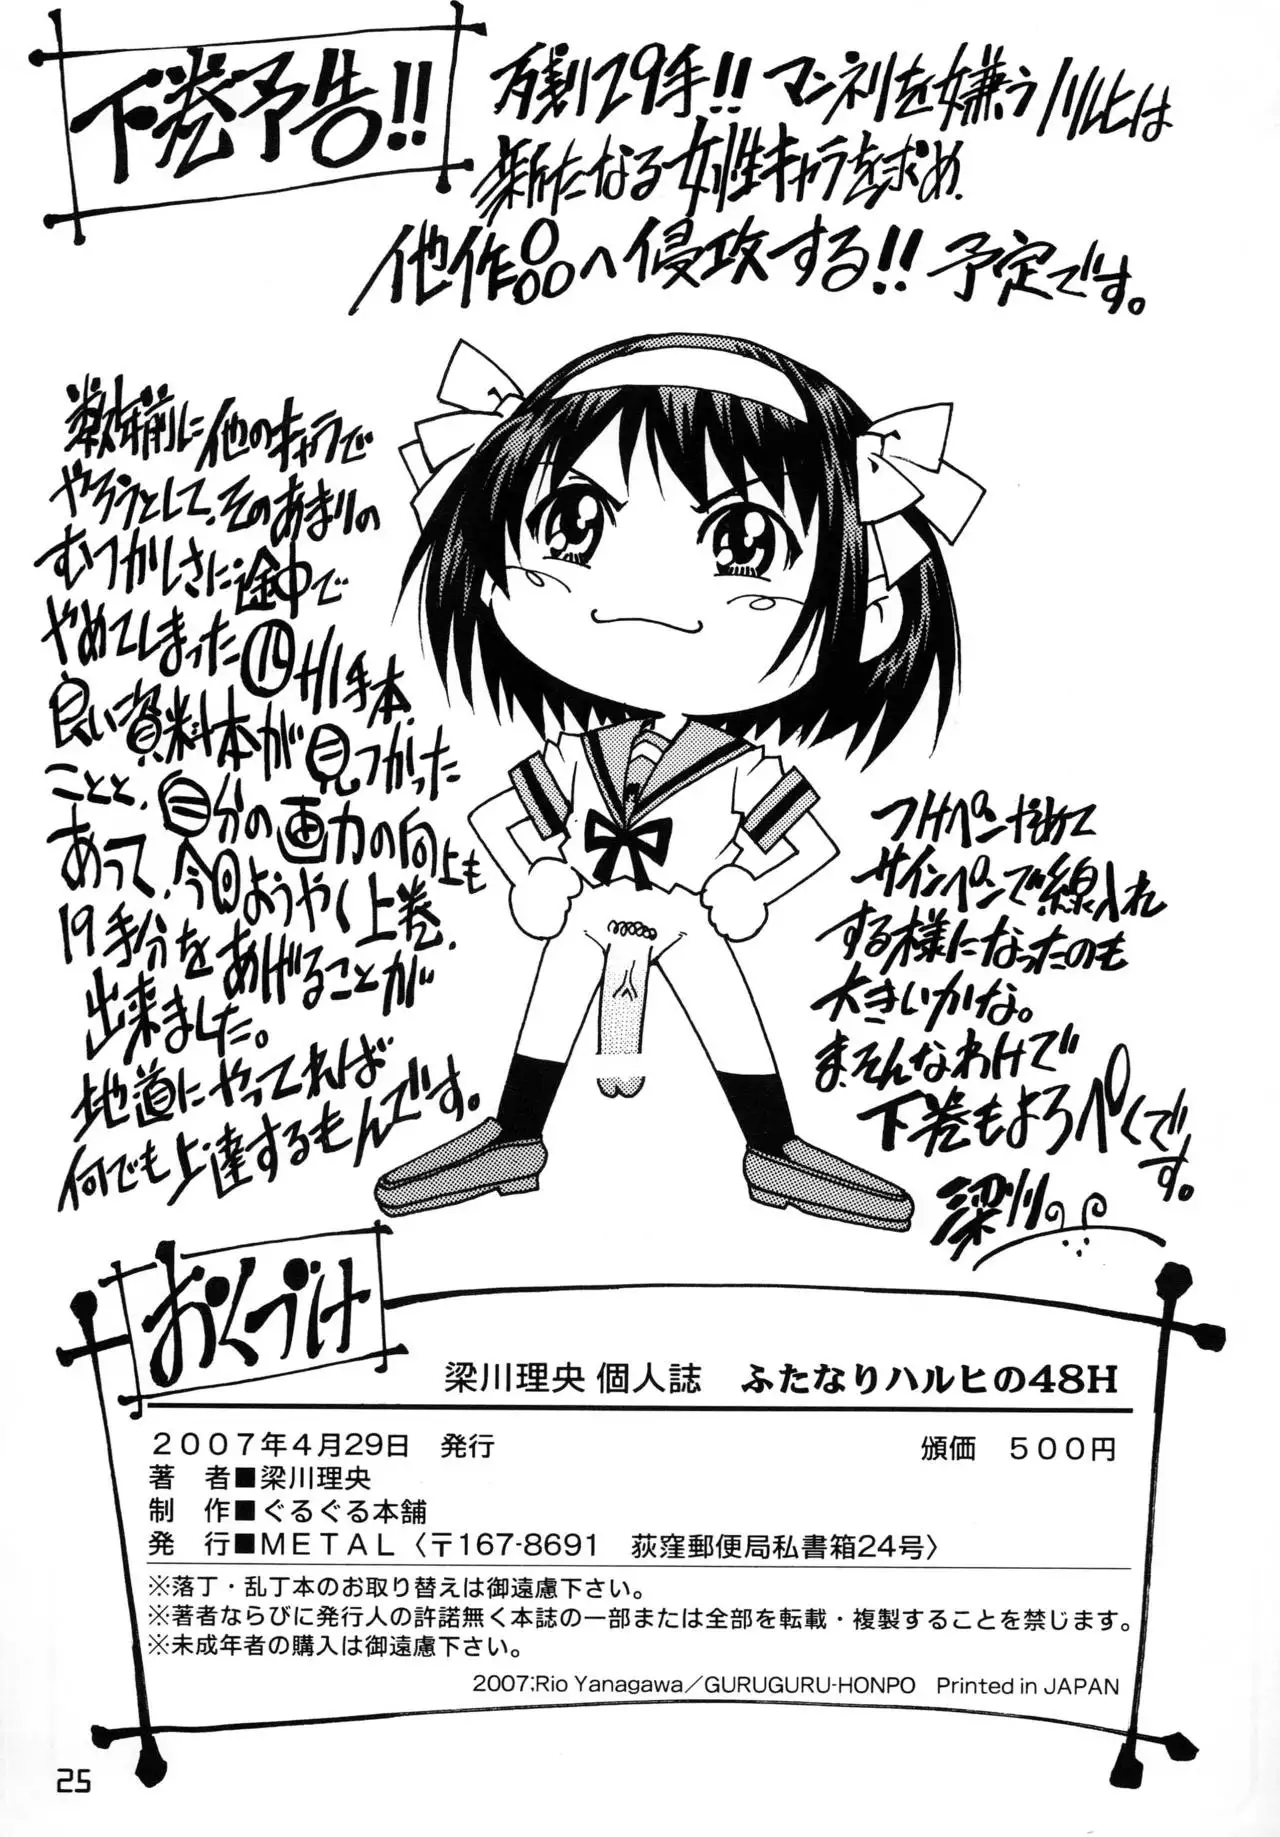 下巻予告!!
方残り29手!! マンネリを嫌うハルヒは
新たなる女性キャラを求め、
他作品へ侵攻する!! 予定です。
数年前に他のキャラで
やろうとして、そのあまりの
むつかしさに途中で
やめてしまった四十八手本、
良い資料本が見つかった
ことと、自分の画力の向上も
あって、今回ようやく上巻、
19手分をあげることが
出来ました。
地道にやってれば
何でも上達するもんです。
つけペンだめて
サインペンで線入れ
する様になったのも
大きいかな。
ま、そんなわけで
下巻もよろぺくです。
梁川。
おくづけ
梁川理央 個人誌 ふたなりハルヒの48H
2007年4月29日 発行 頒価 500円
著 者■梁川理央
制 作■ぐるぐる本舗
発 行■METAL〈〒167-8691 荻窪郵便局私書箱24号〉
※落丁・乱丁本のお取り替えは御遠慮下さい。
※著者ならびに発行人の許諾無く本誌の一部または全部を転載・複製することを禁じます。
※未成年者の購入は御遠慮下さい。
2007:Rio Yanagawa/GURUGURU-HONPO Printed in JAPAN
25